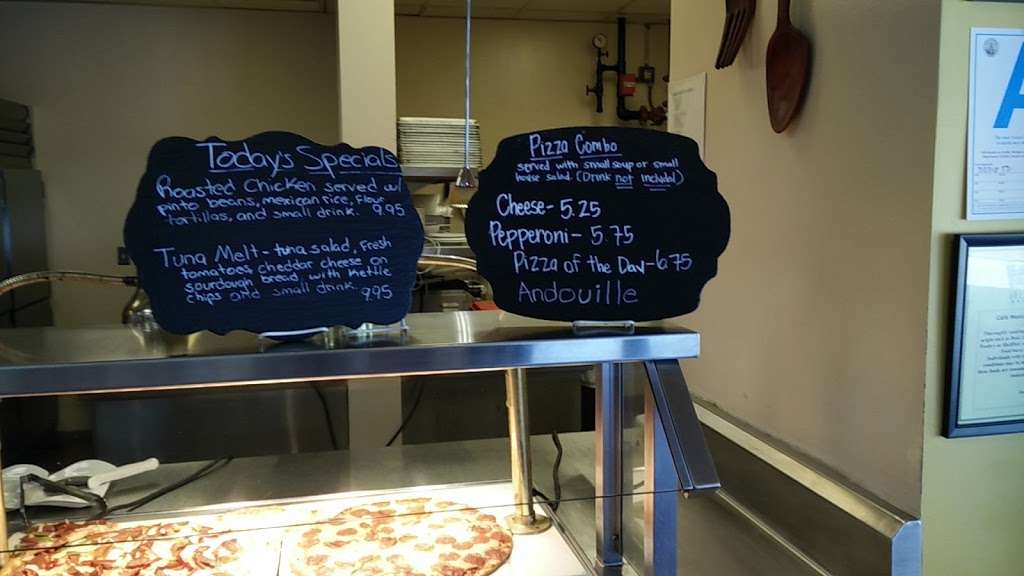 Today's Specials
Roasted Chicken served w/
pinto beans, mexican rice, flour
tortillas, and small drink. 9.95
Tuna Melt - tuna salad, fresh
tomatoes, cheddar cheese on
sourdough bread, with kettle
chips and small drink. 9.95
Pizza Combo
served with small soup or small
house salad (Drink not included)
Cheese - 5.25
Pepperoni - 5.75
Pizza of the Day - 6.75
Andouille
A